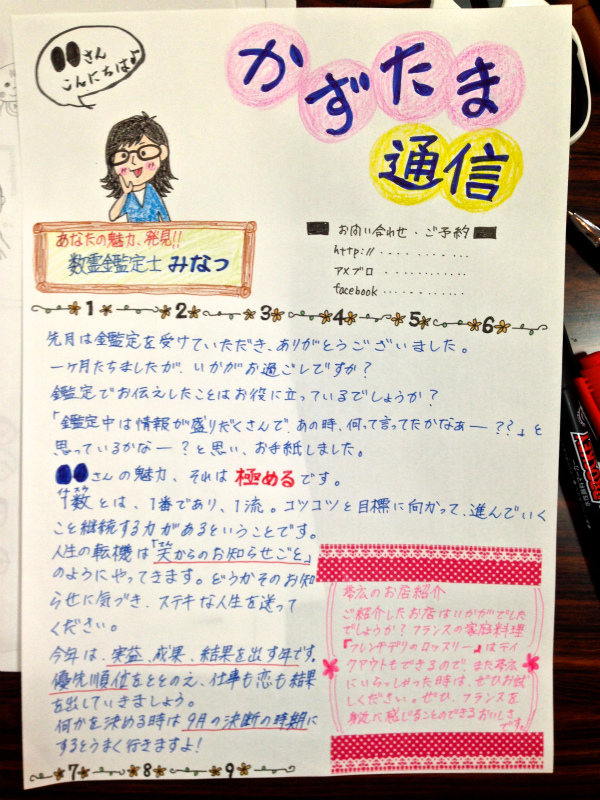 さん
こんにちは♪
かずたま
通信
あなたの魅力、発見!!
数霊鑑定士 みなっ
お問い合わせ・ご予約
http://・・・・・・・・・
アメブロ ・・・・・・・・・・・
facebook・・・・・・・・・・・
1 2 3 4 5 6
先月は鑑定を受けていただき、ありがとうございました。
一ヶ月たちましたが、いかがお過ごしですか？
鑑定でお伝えしたことはお役に立っているでしょうか？
「鑑定中は情報が盛りだくさんで、あの時、何って言ってたかなあー??」と
思っているかなー？と思い、お手紙しました。
さんの魅力、それは極めるです。
1数とは、1番であり、1流。コツコツと目標に向かって、進んでいく
こと継続する力があるということです。
人生の転機は「天からのお知らせごと」
のようにやってきます。どうかそのお知
らせに気づき、ステキな人生を送って
ください。
今年は、実益、成果、結果を出す年です。
優先順位をととのえ、仕事も恋も結果
を出していきましょう。
何かを決める時は9月の決断の時期に
するとうまく行きますよ！
帯広のお店紹介
ご紹介したお店はいかがでした
でしょうか？フランスの家庭料理
『フレンチデリのロッスリー』はテイ
クアウトもできるので、また帯広
にいらっしゃった時は、ぜひお試
しください。ぜひ、フランスを
身近に感じることのできるおいしさ
です。
7 8 9